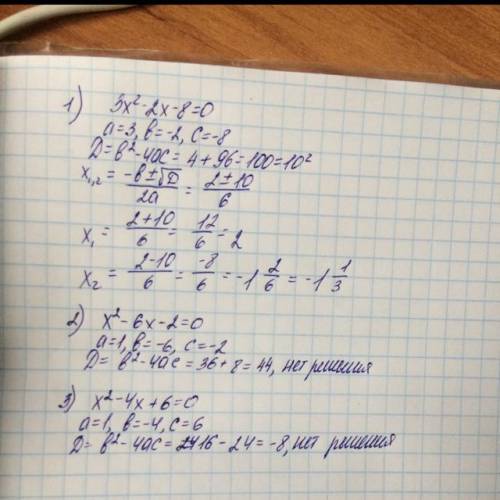 1) 3x²-2x-8=0
a=3, в=-2, c=-8
D=в²-4ac=4+96=100=10²
x₁,₂=(-в±√D)/2a=(2±10)/6
x₁=(2+10)/6=12/6=2
x₂=(2-10)/6=-8/6=-1 2/6=-1 1/3
2) x²-6x-2=0
a=1, в=-6, c=-2
D=в²-4ac=36+8=44, нет решения
3) x²-4x+6=0
a=1, в=-4, c=6
D=в²-4ac=16-24=-8, нет решения